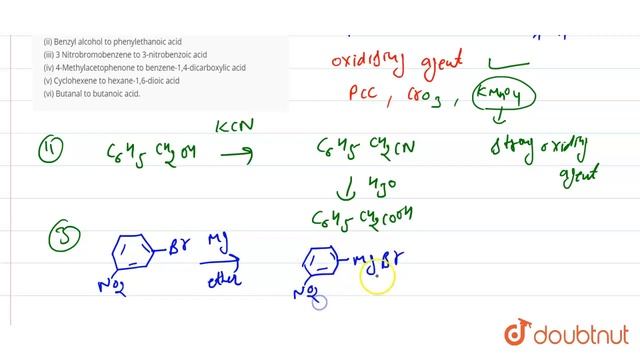 (ii) Benzyl alcohol to phenylethanoic acid
(iii) 3 Nitrobromobenzene to 3-nitrobenzoic acid
(iv) 4-Methylacetophenone to benzene-1,4-dicarboxylic acid
(v) Cyclohexene to hexane-1,6-dioic acid
(vi) Butanal to butanoic acid.
oxidising agent
PCC, CrO3, KMnO4
strong oxidising agent
(ii) C6H5CH2OH KCN C6H5CH2CN
H3O
C6H5CH2COOH
(3) Br Mg MgBr
NO2 ether NO2
doubtnut